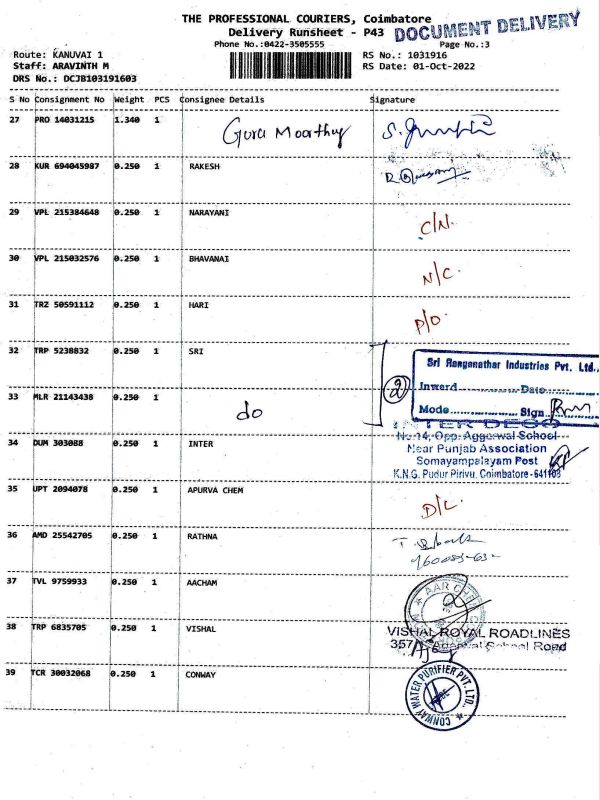 THE PROFESSIONAL COURIERS, Coimbatore
Delivery Runsheet - P43
DOCUMENT DELIVERY
Phone No.:0422-3505555
Page No.:3
Route: KANUVAI 1
RS No.: 1031916
Staff: ARAVINTH M
RS Date: 01-Oct-2022
DRS No.: DCJB103191603
S No Consignment No Weight PCS Consignee Details Signature
27 PRO 14031215 1.340 1 Guru Moorthy
28 KUR 694045987 0.250 1 RAKESH
29 VPL 215384648 0.250 1 NARAYANI C/N.
30 VPL 215032576 0.250 1 BHAVANAI N/C.
31 TRZ 50591112 0.250 1 HARI P/O.
32 TRP 5238832 0.250 1 SRI
2
Sri Ranganathar Industries Pvt. Ltd.,
Inward............Date............
Mode............Sign
33 MLR 21143438 0.250 1 do
34 DUM 303088 0.250 1 INTER
INTER DECO
No.14, Opp. Aggarwal School
Near Punjab Association
Somayampalayam Post
K.N.G. Pudur Pirivu, Coimbatore - 641108
35 UPT 2094078 0.250 1 APURVA CHEM D/L.
36 AMD 25542705 0.250 1 RATHNA
37 TVL 9759933 0.250 1 AACHAM
38 TRP 6835705 0.250 1 VISHAL
VISHAL ROYAL ROADLINES
357 Agarwal School Road
39 TCR 30032068 0.250 1 CONWAY
CONWAY WATER PURIFIER PVT. LTD.,